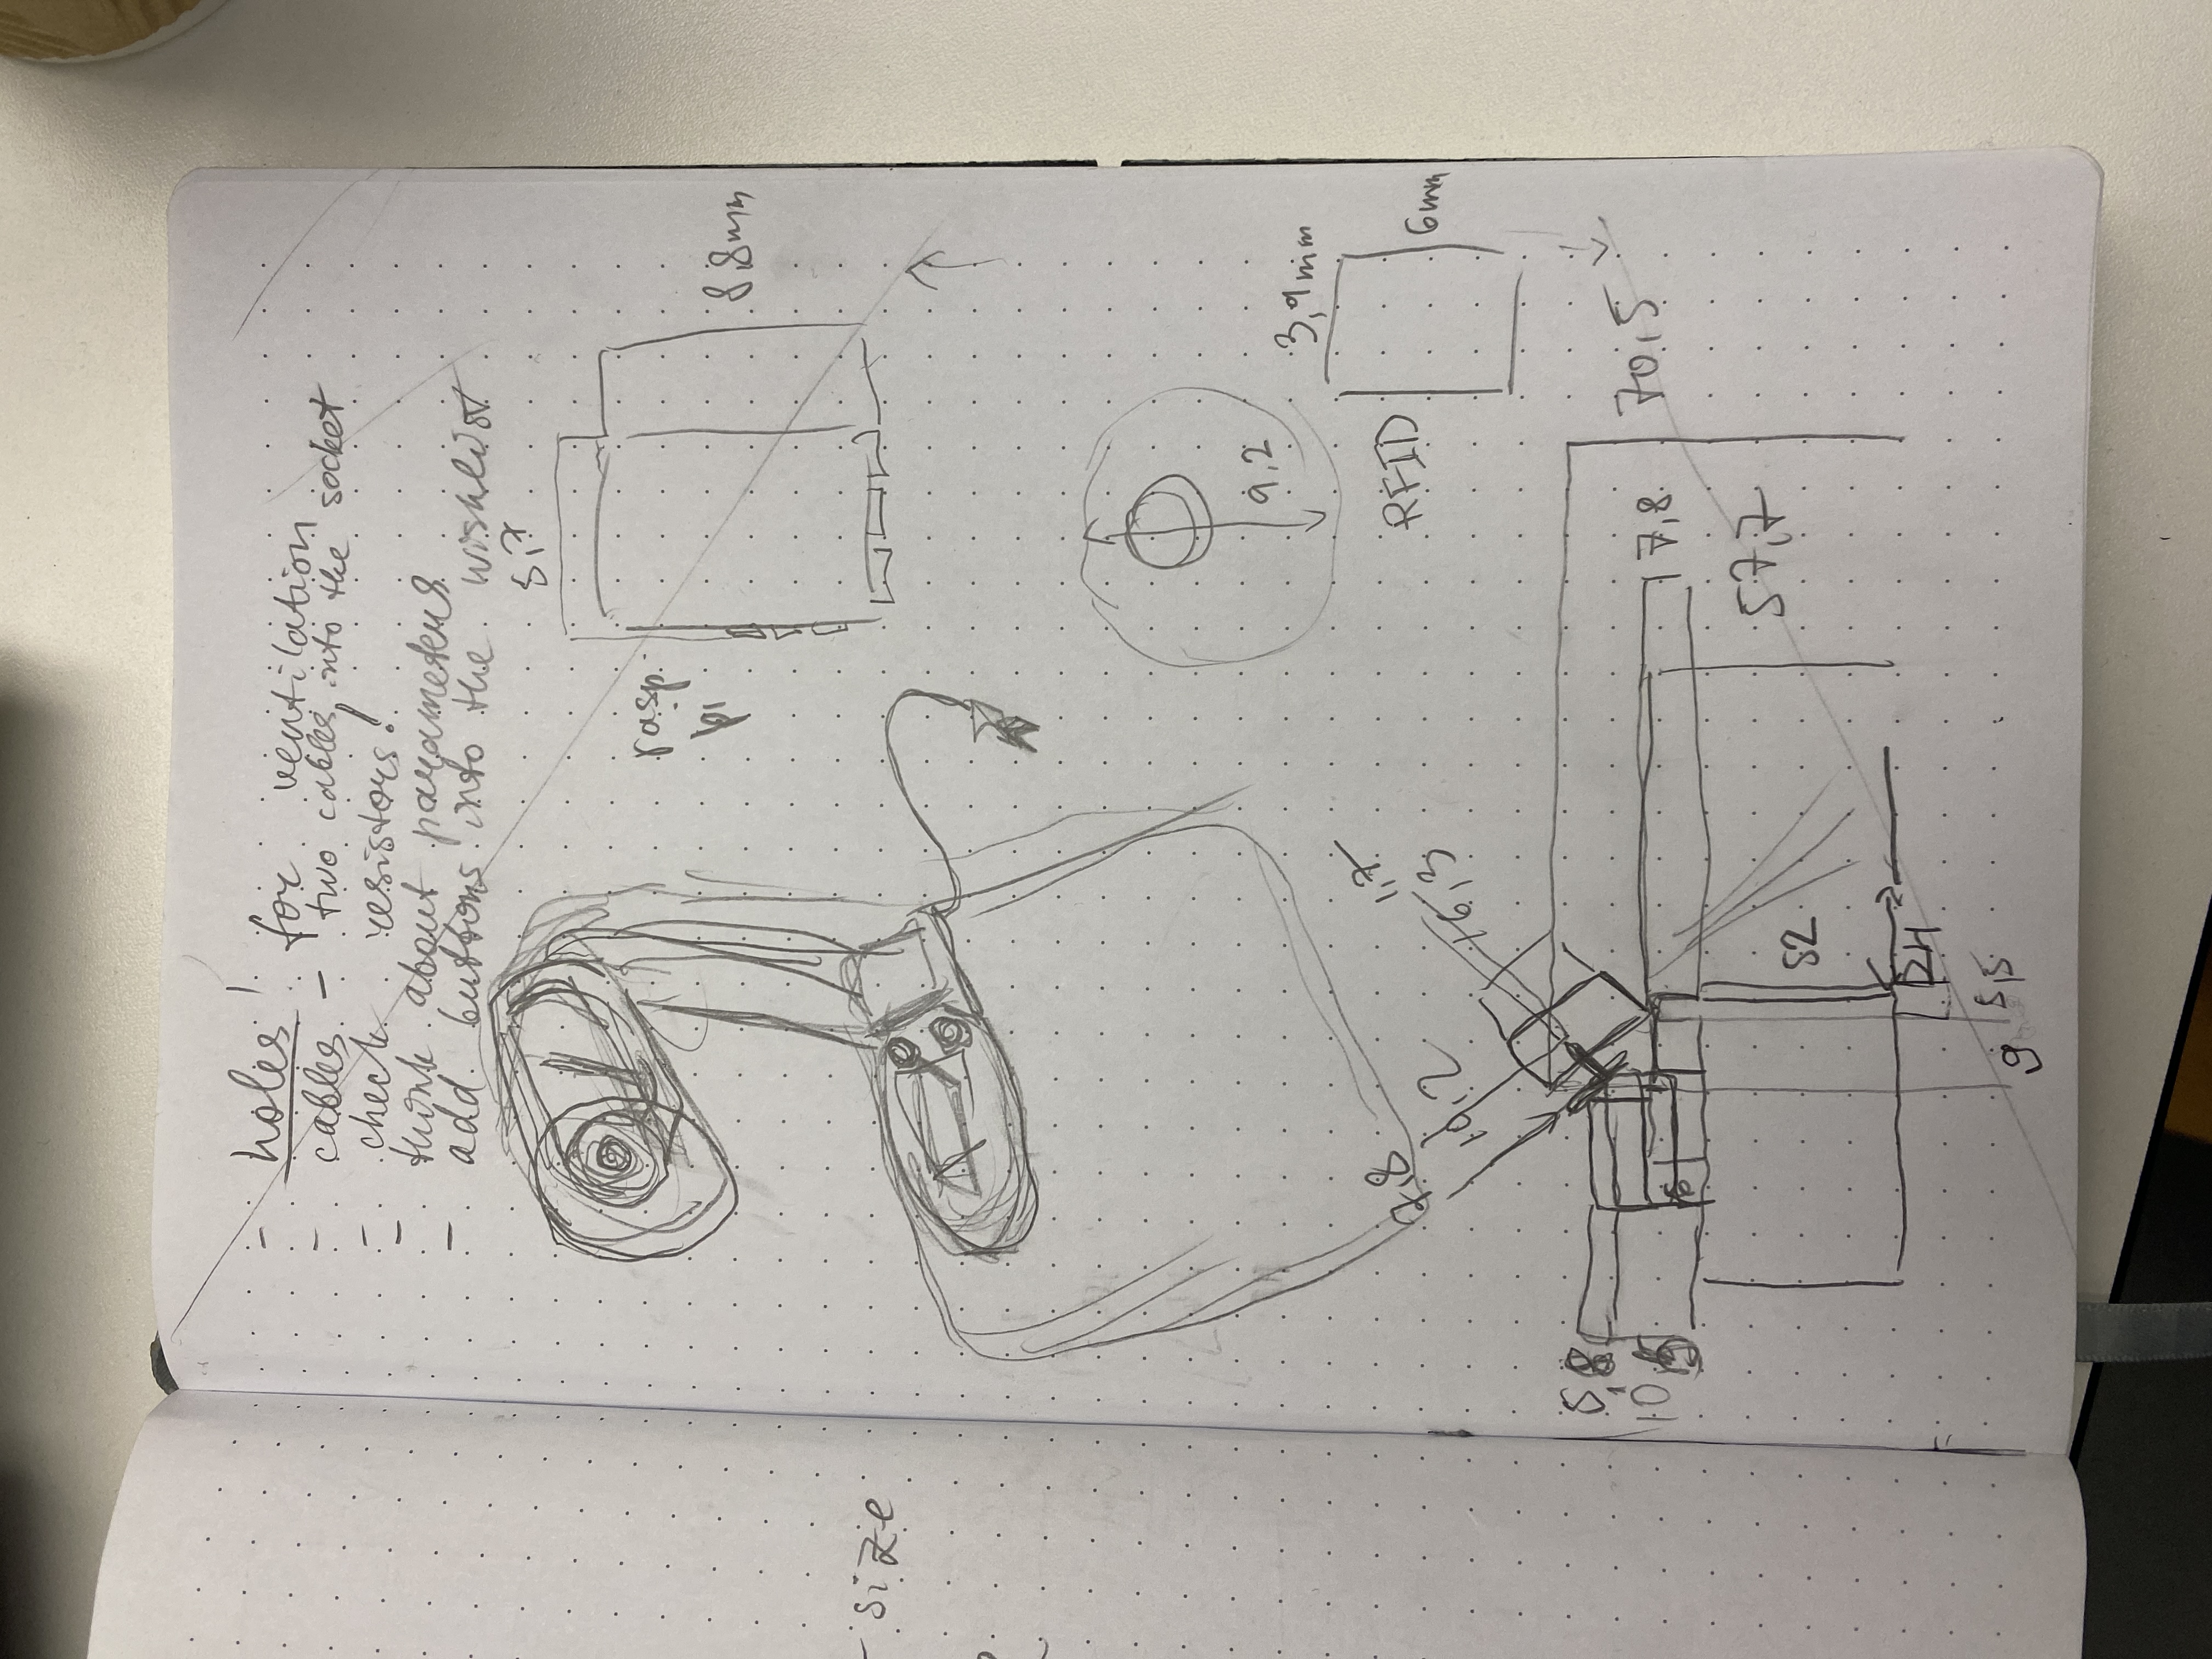 - holes! for ventilation
- cables - two cables into the socket
- check resistors!
- think about parameters
- add buttons into the wishlist
5,7
rasp.
pi
8,8mm
- size
9,2
3,9mm
RFID
6mm
7,8
19,2
1,7
16,3
5,8
70,5
7,8
57,7
52
24
5,5
9